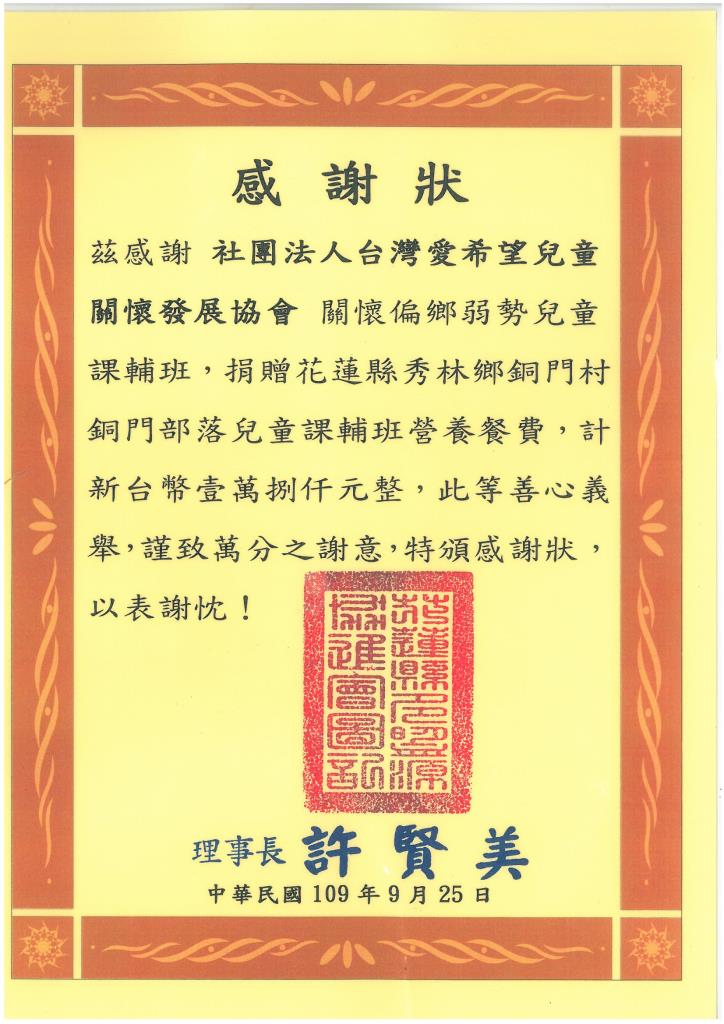 感謝狀
茲感謝 社團法人台灣愛希望兒童
關懷發展協會 關懷偏鄉弱勢兒童
課輔班，捐贈花蓮縣秀林鄉銅門村
銅門部落兒童課輔班營養餐費，計
新台幣壹萬捌仟元整，此等善心義
舉，謹致萬分之謝意，特頒感謝狀，
以表謝忱！
理事長 許賢美
中華民國109年9月25日